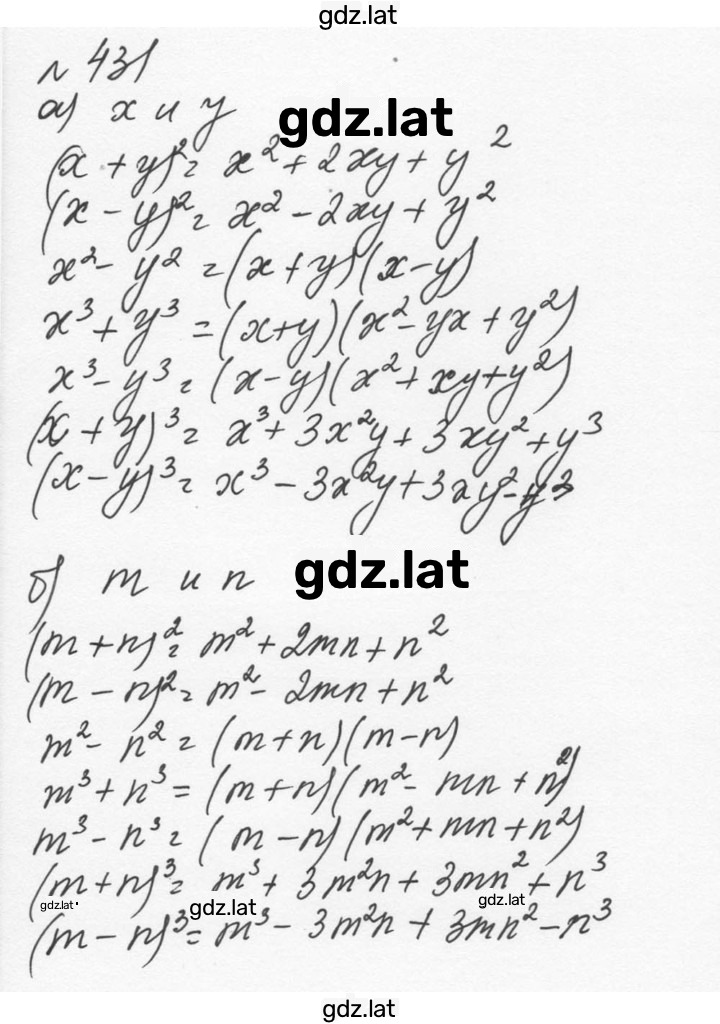 gdz.lat
№ 431
а) x и y gdz.lat
(x + y)² = x² + 2xy + y²
(x - y)² = x² - 2xy + y²
x² - y² = (x + y)(x - y)
x³ + y³ = (x+y)(x² - yx + y²)
x³ - y³ = (x - y)(x² + xy + y²)
(x + y)³ = x³ + 3x²y + 3xy² + y³
(x - y)³ = x³ - 3x²y + 3xy² - y³
б) m и n gdz.lat
(m + n)² = m² + 2mn + n²
(m - n)² = m² - 2mn + n²
m² - n² = (m + n)(m - n)
m³ + n³ = (m + n)(m² - mn + n²)
m³ - n³ = (m - n)(m² + mn + n²)
(m + n)³ = m³ + 3m²n + 3mn² + n³
gdz.lat gdz.lat gdz.lat
(m - n)³ = m³ - 3m²n + 3mn² - n³
gdz.lat